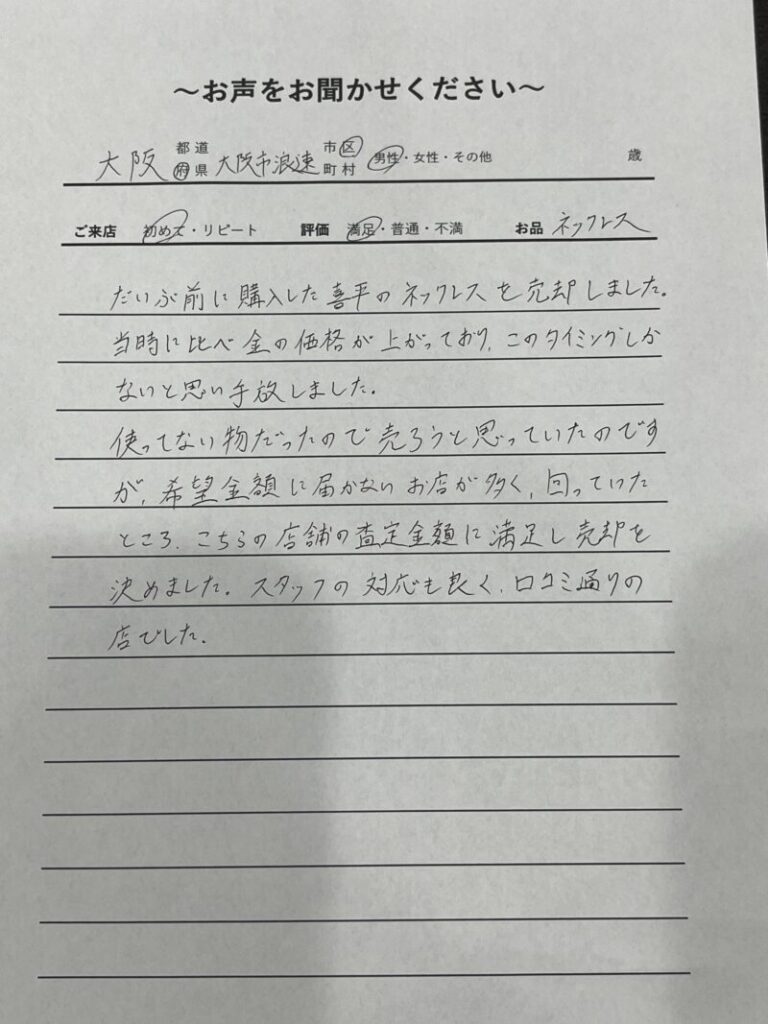 ～お声をお聞かせください～
大阪 都道府県 大阪市浪速 市区町村 男性・女性・その他 歳
ご来店 初めて・リピート 評価 満足・普通・不満 お品 ネックレス
だいぶ前に購入した喜平のネックレスを売却しました。
当時に比べ金の価格が上がっており、このタイミングしか
ないと思い手放しました。
使ってない物だったので売ろうと思っていたのです
が、希望金額に届かないお店が多く、回っていた
ところ、こちらの店舗の査定金額に満足し売却を
決めました。スタッフの対応も良く、口コミ通りの
店でした。